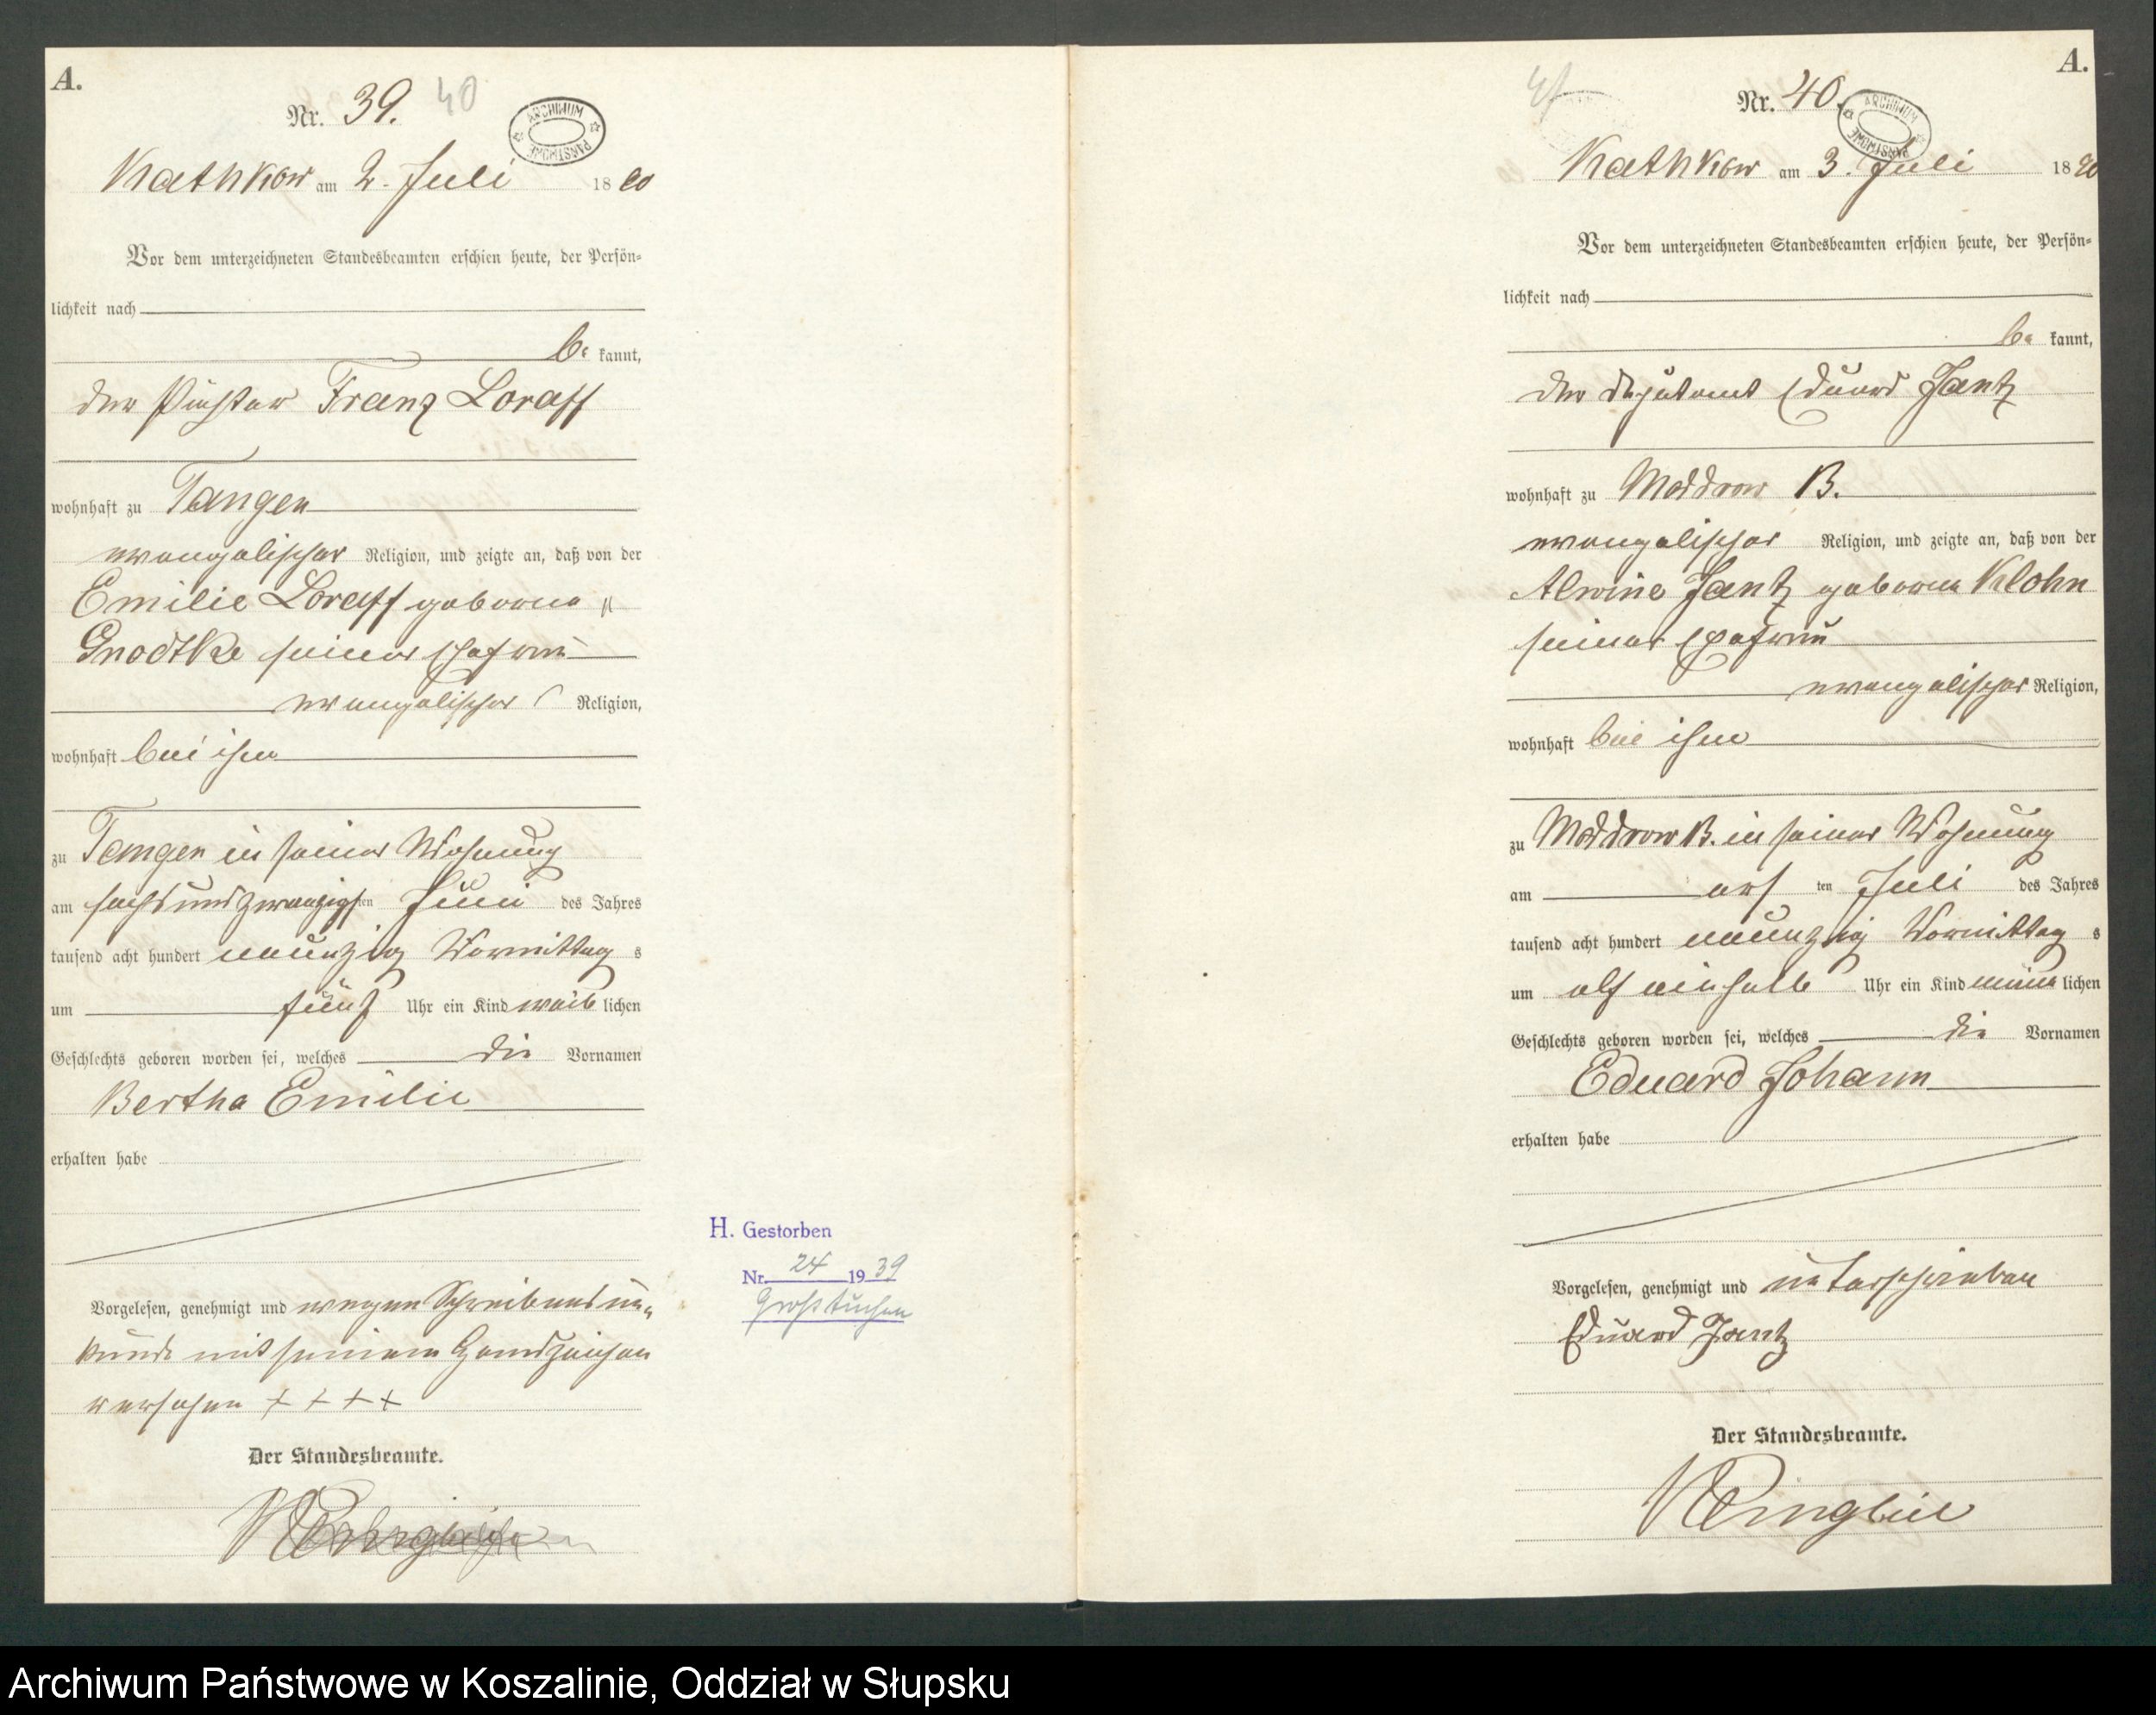 A.
Nr. 39. 40
ARCHIWUM PAŃSTWOWE
Kathkow am 2. Juli 1890
Vor dem unterzeichneten Standesbeamten erschien heute, der Persön-
lichkeit nach
be kannt,
der Franz Loraff
wohnhaft zu Tangen
evangelischer Religion, und zeigte an, daß von der
Emilie Loraff geborene
Gnodtke seiner Ehefrau
evangelischer Religion,
wohnhaft bei ihm
zu Tangen in seiner Wohnung
am sechsundzwanzigsten Juni des Jahres
tausend acht hundert neunzig Vormittag s
um fünf Uhr ein Kind weib lichen
Geschlechts geboren worden sei, welches die Vornamen
Bertha Emilie
erhalten habe
Vorgelesen, genehmigt und wegen Schreibensun-
kunde mit seinem Handzeichen
versehen + + + +
Der Standesbeamte.
H. Gestorben
Nr. 24 1939
Großtuchen
A.
41
Nr. 40.
ARCHIWUM PAŃSTWOWE
Kathkow am 3. Juli 1890
Vor dem unterzeichneten Standesbeamten erschien heute, der Persön-
lichkeit nach
be kannt,
der Deputant Eduard Jantz
wohnhaft zu Moddrow B.
evangelischer Religion, und zeigte an, daß von der
Alwine Jantz geborene Klohn
seiner Ehefrau
evangelischer Religion,
wohnhaft bei ihm
zu Moddrow B. in seiner Wohnung
am ers ten Juli des Jahres
tausend acht hundert neunzig Vormittag s
um elf einhalb Uhr ein Kind männ lichen
Geschlechts geboren worden sei, welches die Vornamen
Eduard Johann
erhalten habe
Vorgelesen, genehmigt und unterschrieben
Eduard Jantz
Der Standesbeamte.
Archiwum Państwowe w Koszalinie, Oddział w Słupsku